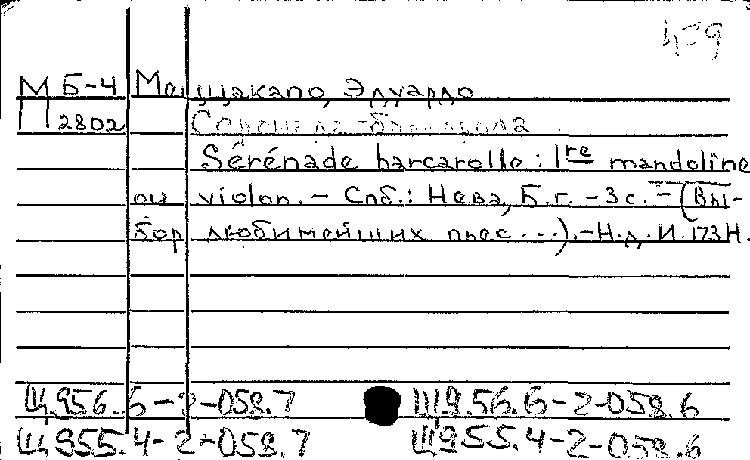 М Б-4 Маццакапо, Эдуардо
П 2802 Серенада-баркарола
Sérénade barcarolle : 1re mandoline
ou violon. – Спб.: Нева, Б.г. – 3 с. – (Вы-
бор любимейших пьес...). – Н.д. И. 173 Н.
Щ956.6-2-058.7 Щ956.6-2-058.6
Щ955.4-2-058.7 Щ955.4-2-058.6